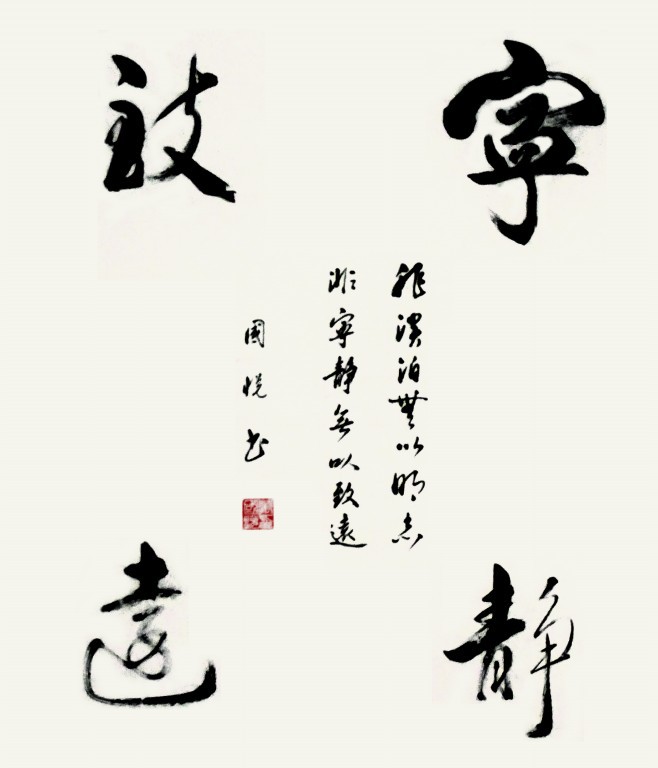 寧靜
致遠
非淡泊無以明志
非寧靜無以致遠
國悅書